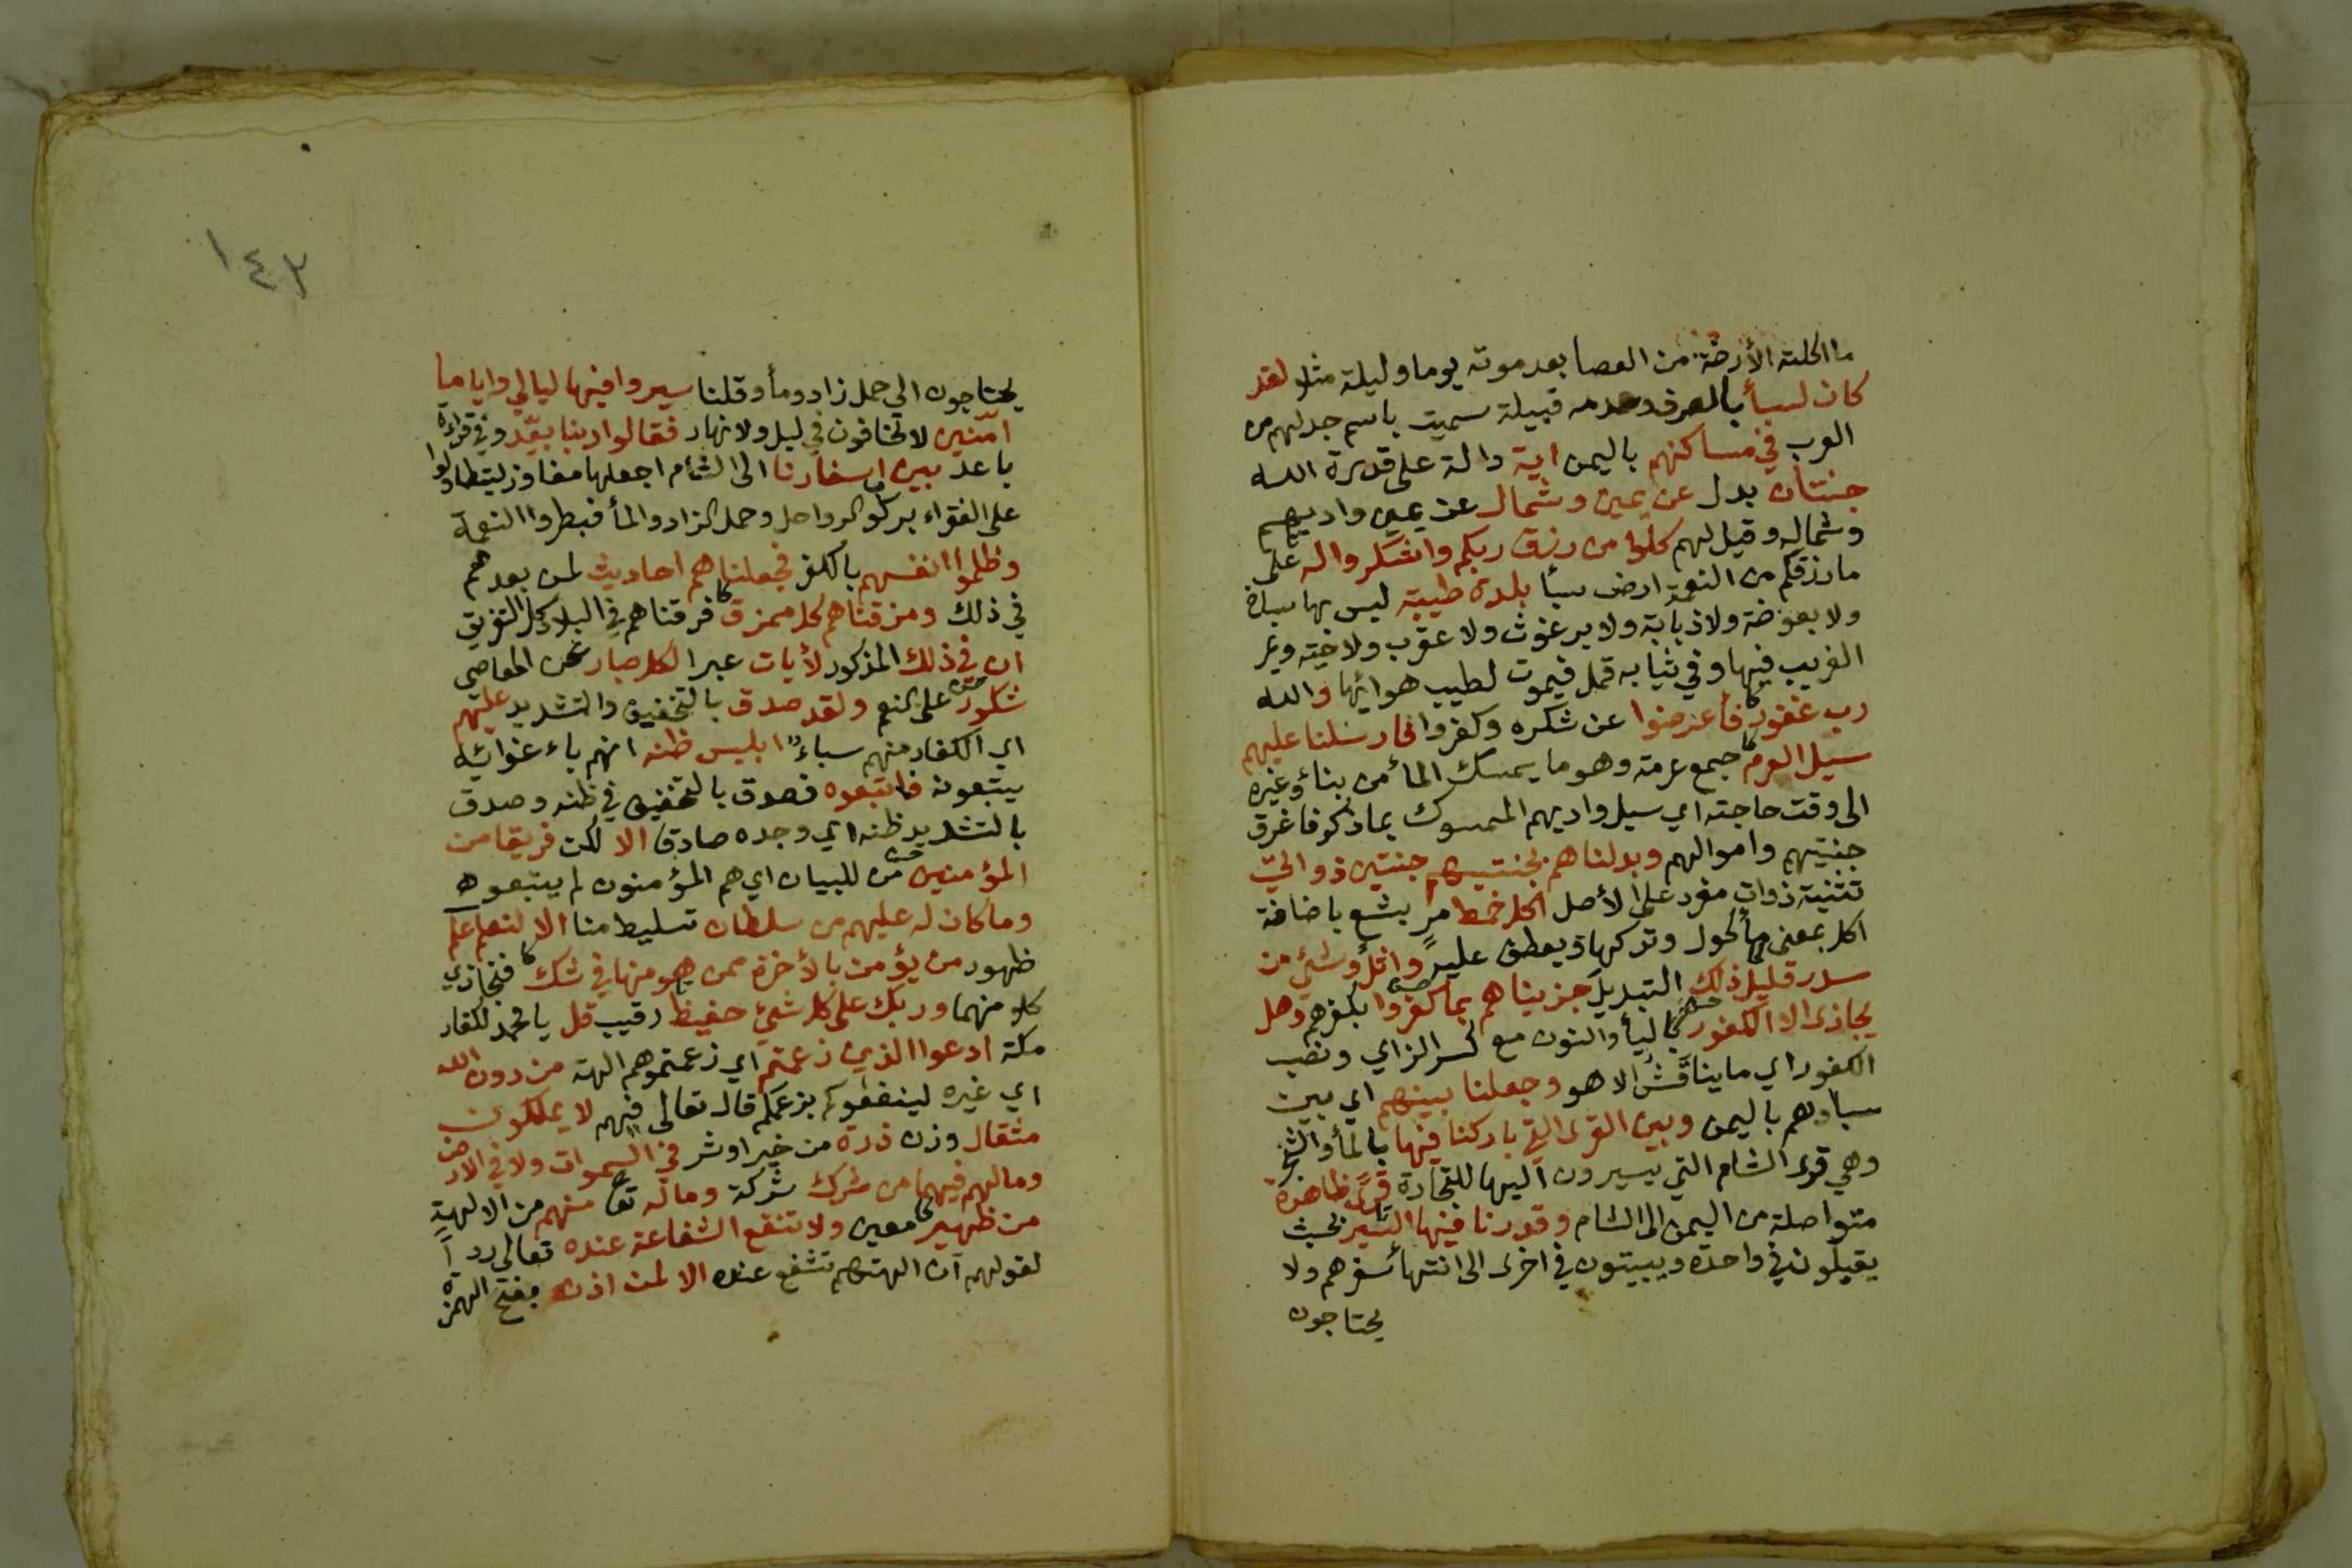 ما اكلته الأرضة من العصا بعد موته يوما وليلة مثلا لقد
كان لسبأ بالصرف وعدمه قبيلة سميت باسم جد لهم من
العرب في مساكنهم باليمن اية دالة على قدرة الله
جنتان بدل عن يمين وشمال عن يمين واديهم
وشماله وقيل لهم كلوا من رزق ربكم واشكروا له على
ما رزقكم من النعمة ارض سبأ بلدة طيبة ليس بها سباخ
ولا بعوضة ولا ذبابة ولا برغوث ولا عقرب ولا حية ويمر
الغريب فيها وفي ثيابه قمل فيموت لطيب هوائها والله
رب غفور فأعرضوا عن شكره وكفروا فارسلنا عليهم
سيل العرم جمع عرمة وهو ما يمسك المأ من بناء وغيره
الى وقت حاجته اي سيل واديهم الممسوك بما ذكر فاغرق
جنتيهم واموالهم وبدلناهم بجنتيهم جنتين ذواتي
تثنية ذوات مفرد على الأصل اكل خمط مر بشع باضافة
اكل بمعنى مأكول وتركها ويعطف عليه واثل وشيء من
سدر قليل ذلك التبديل جزيناهم بما كفروا بكفرهم وهل
يجازى الا الكفور باليأ والنون مع كسر الزاي ونصب
الكفور اي ما يناقش الا هو وجعلنا بينهم اي بين
سبا وهم باليمن وبين القرى التي باركنا فيها بالمأ والشجر
وهي قرى الشام التي يسيرون اليها للتجارة قرى ظاهرة
متواصلة من اليمن الى الشام وقدرنا فيها السير بحيث
يقيلون في واحدة ويبيتون في اخرى الى انتهاء سفرهم ولا
يحتاجون
١٤٣
يحتاجون الى حمل زاد ومأ وقلنا سيروا فيها ليالي واياما
امنين لا تخافون في ليل ولا نهار فقالوا ربنا بعد وفي قراءة
باعد بين اسفارنا الى الشام اجعلها مفاوز ليتطاولوا
على الفقراء بركوب الرواحل وحمل الزاد والمأ فبطروا النعمة
وظلموا انفسهم بالكفر فجعلناهم احاديث لمن بعدهم
في ذلك ومزقناهم كل ممزق فرقناهم في البلاد كل التفريق
ان في ذلك المذكور لأيات عبرا لكل صبار عن المعاصي
شكور على النعم ولقد صدق بالتخفيف والتشديد عليهم
اي الكفار منهم سباء ابليس ظنه انهم باءغوائه
يتبعونه فاتبعوه فصدق بالتخفيف في ظنه وصدق
بالتشديد ظنه اي وجده صادقا الا لكن فريقا من
المؤمنين من للبيان اي هم المؤمنون لم يتبعوه
وما كان له عليهم من سلطان تسليط منا الا لنعلم علم
ظهور من يؤمن بالأخرة ممن هو منها في شك فنجازي
كلا منهما وربك على كل شيئ حفيظ رقيب قل يا محمد لكفار
مكة ادعوا الذين زعمتم اي زعمتموهم الهة من دون الله
اي غيره لينفعوكم بزعمكم قال تعالى فيهم لا يملكون
مثقال وزن ذرة من خير او شر في السموات ولا في الارض
وما لهم فيهما من شرك شركة وما له تعا منهم من الالهة
من ظهير معين ولا تنفع الشفاعة عنده تعالى ردا
لقولهم ان الهتهم تشفع عنده الا لمن اذن بفتح الهمزة